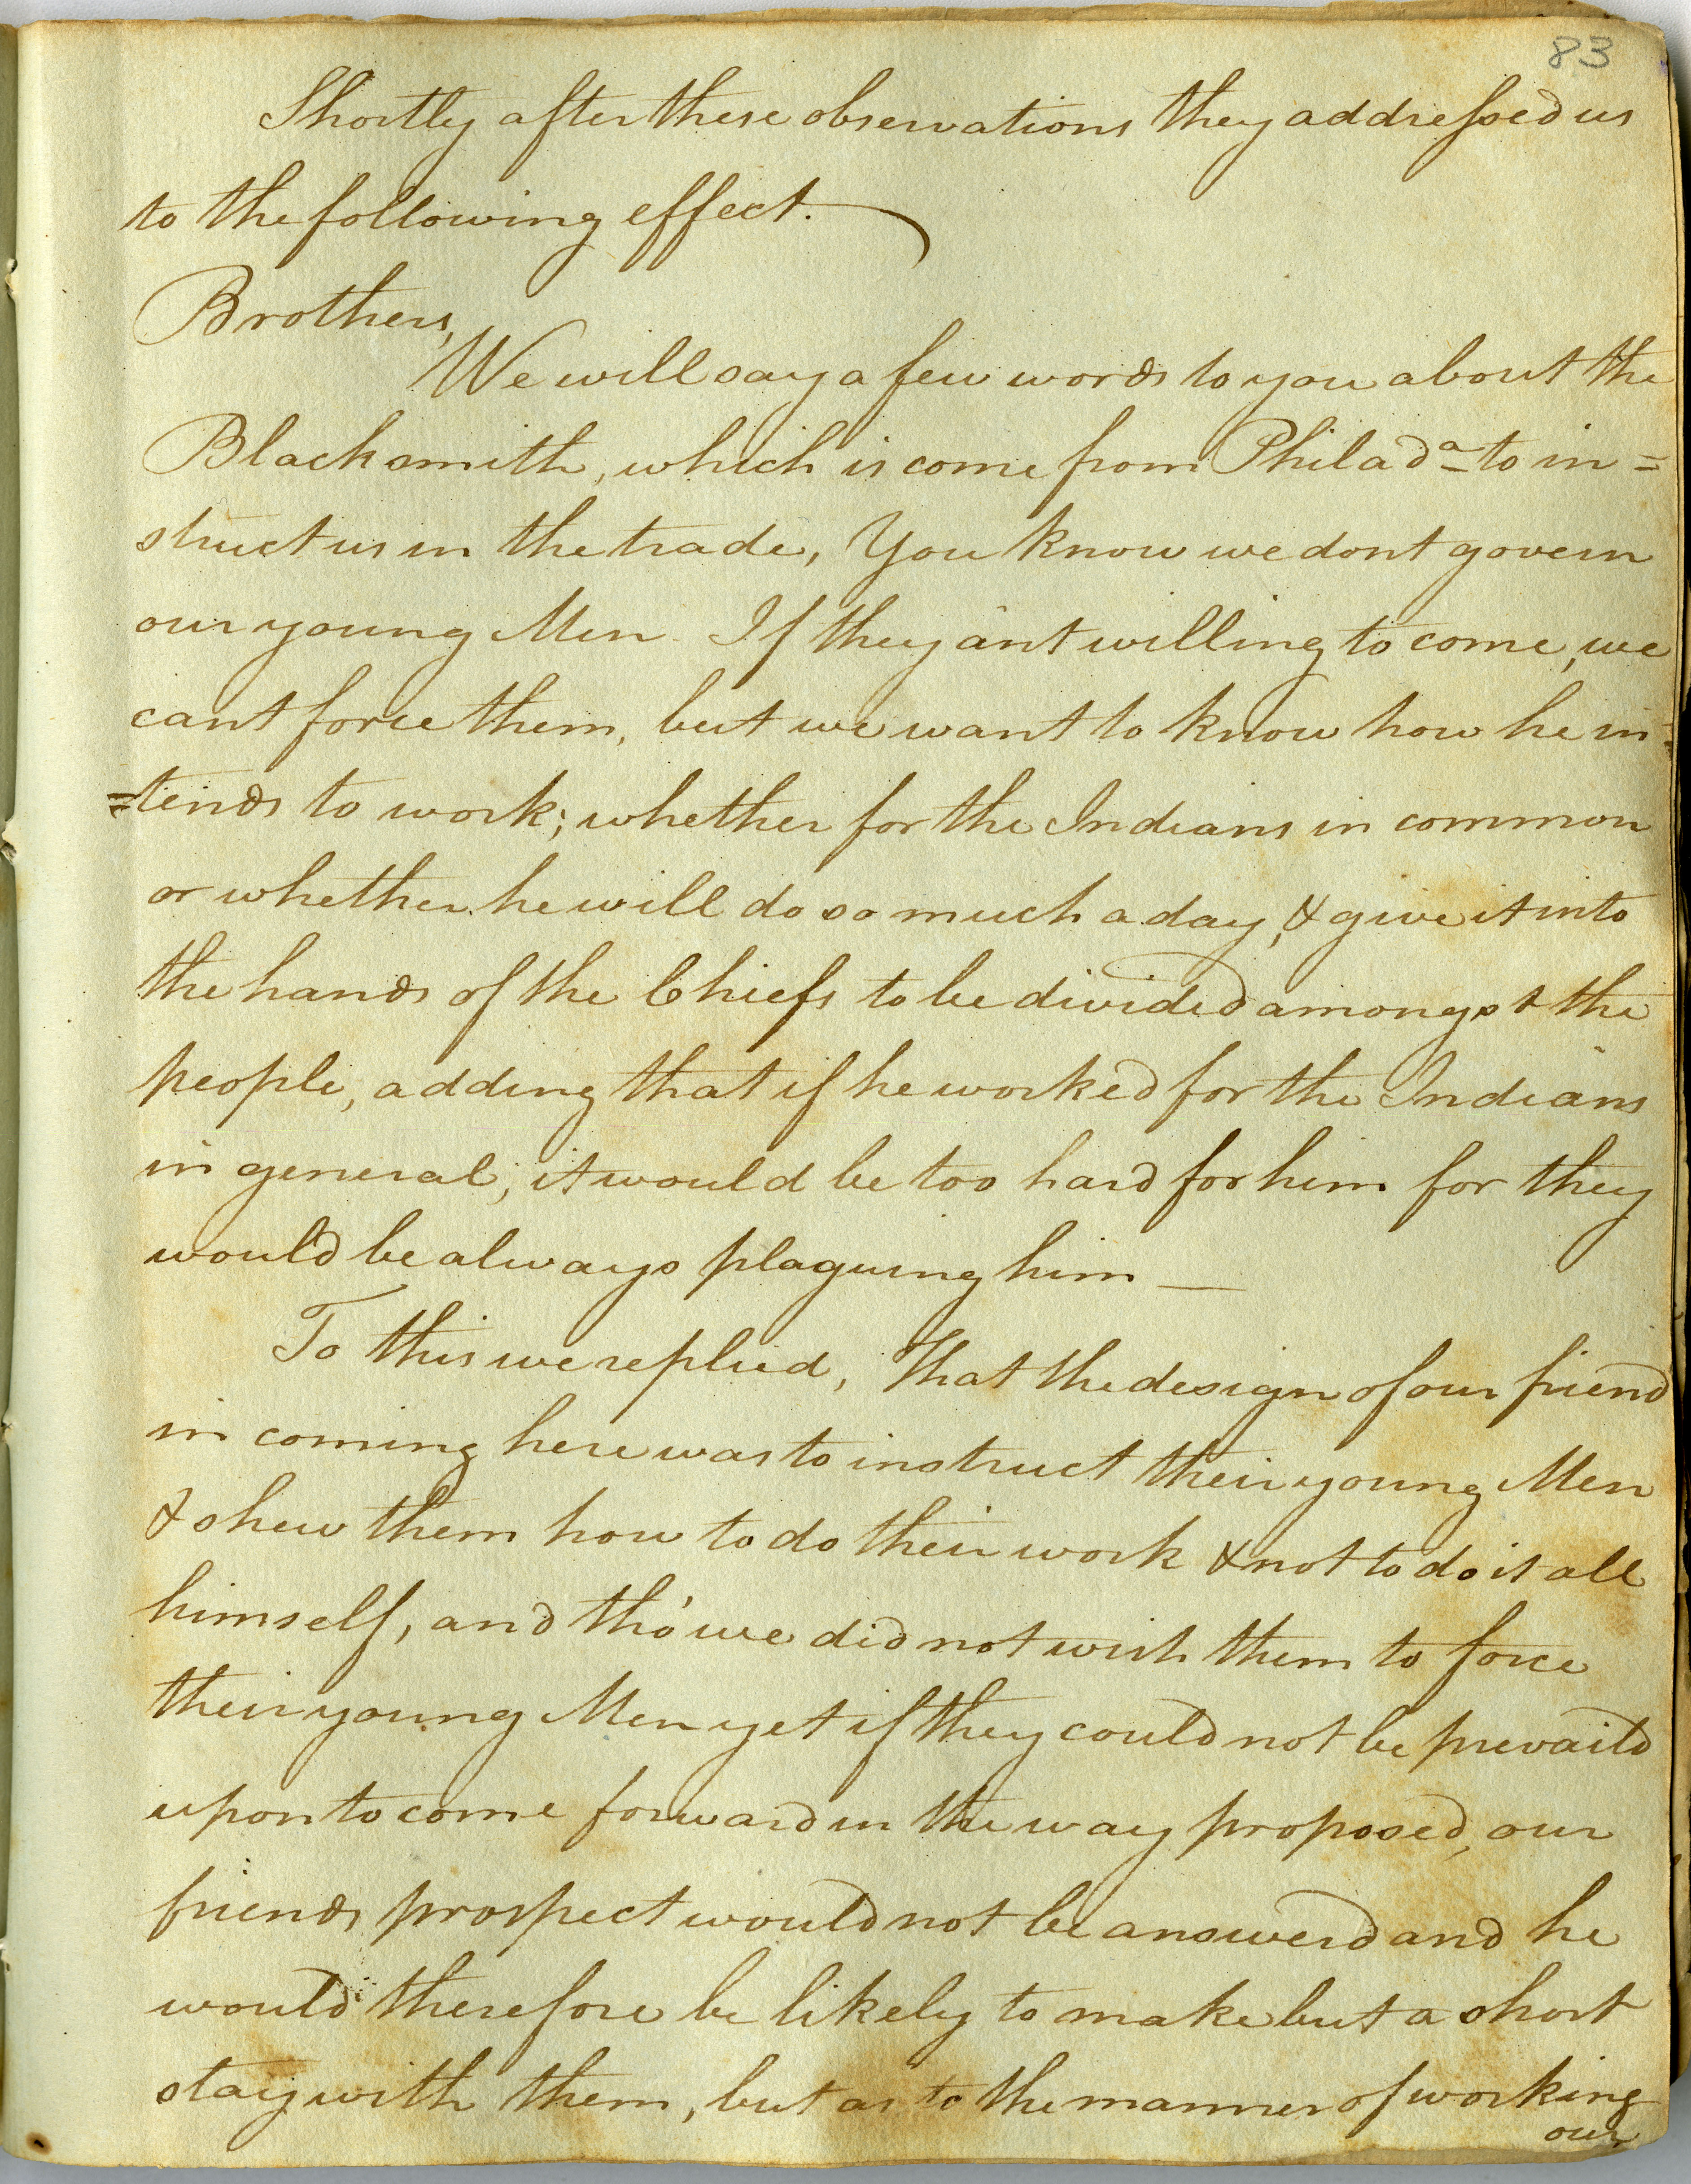 83
Shortly after these observations they addressed us
to the following effect.
Brothers,
We will say a few words to you about the
Blacksmith, which is come from Philada to in=
struct us in the trade, You know we dont govern
our young Men. If they ant willing to come, we
cant force them, but we want to know how he in=
=tends to work; whether for the Indians in common
or whether he will do so much a day, & give it into
the hands of the Chiefs to be divided amongst the
people, adding that if he worked for the Indians
in general, it would be too hard for him for they
would be always plaguing him —
To this we replied, That the design of our friend
in coming here was to instruct their young Men
& shew them how to do their work & not to do it all
himself, and tho' we did not wish them to force
their young Men yet if they could not be prevaild
upon to come forward in the way proposed, our
friends prospect would not be answerd and he
would therefore be likely to make but a short
stay with them, but as to the manner of working
our